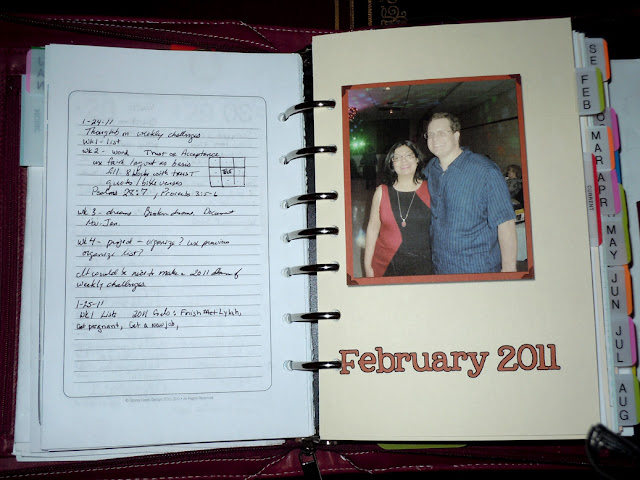 1-24-11
Thoughts on weekly challenges
Wk 1 - List
Wk 2 - word Trust or Acceptance
use faith layout as basis
fill 8 blocks with trust
quotes / bible verses
Psalms 28:7, Proverbs 3:5-6
Wk 3 - dreams Broken dreams, Document
Wk 4 - project - organize? Use previous
organize list?
It would be nice to make a 2011 of
weekly challenges.
1-25-11
Wk 1 Lists 2011 Goals: Finish
Get pregnant, Get a new job,
February 2011
JAN
SE
FEB
MAR
APR
CURRENT
MAY
JUN
JUL
AUG